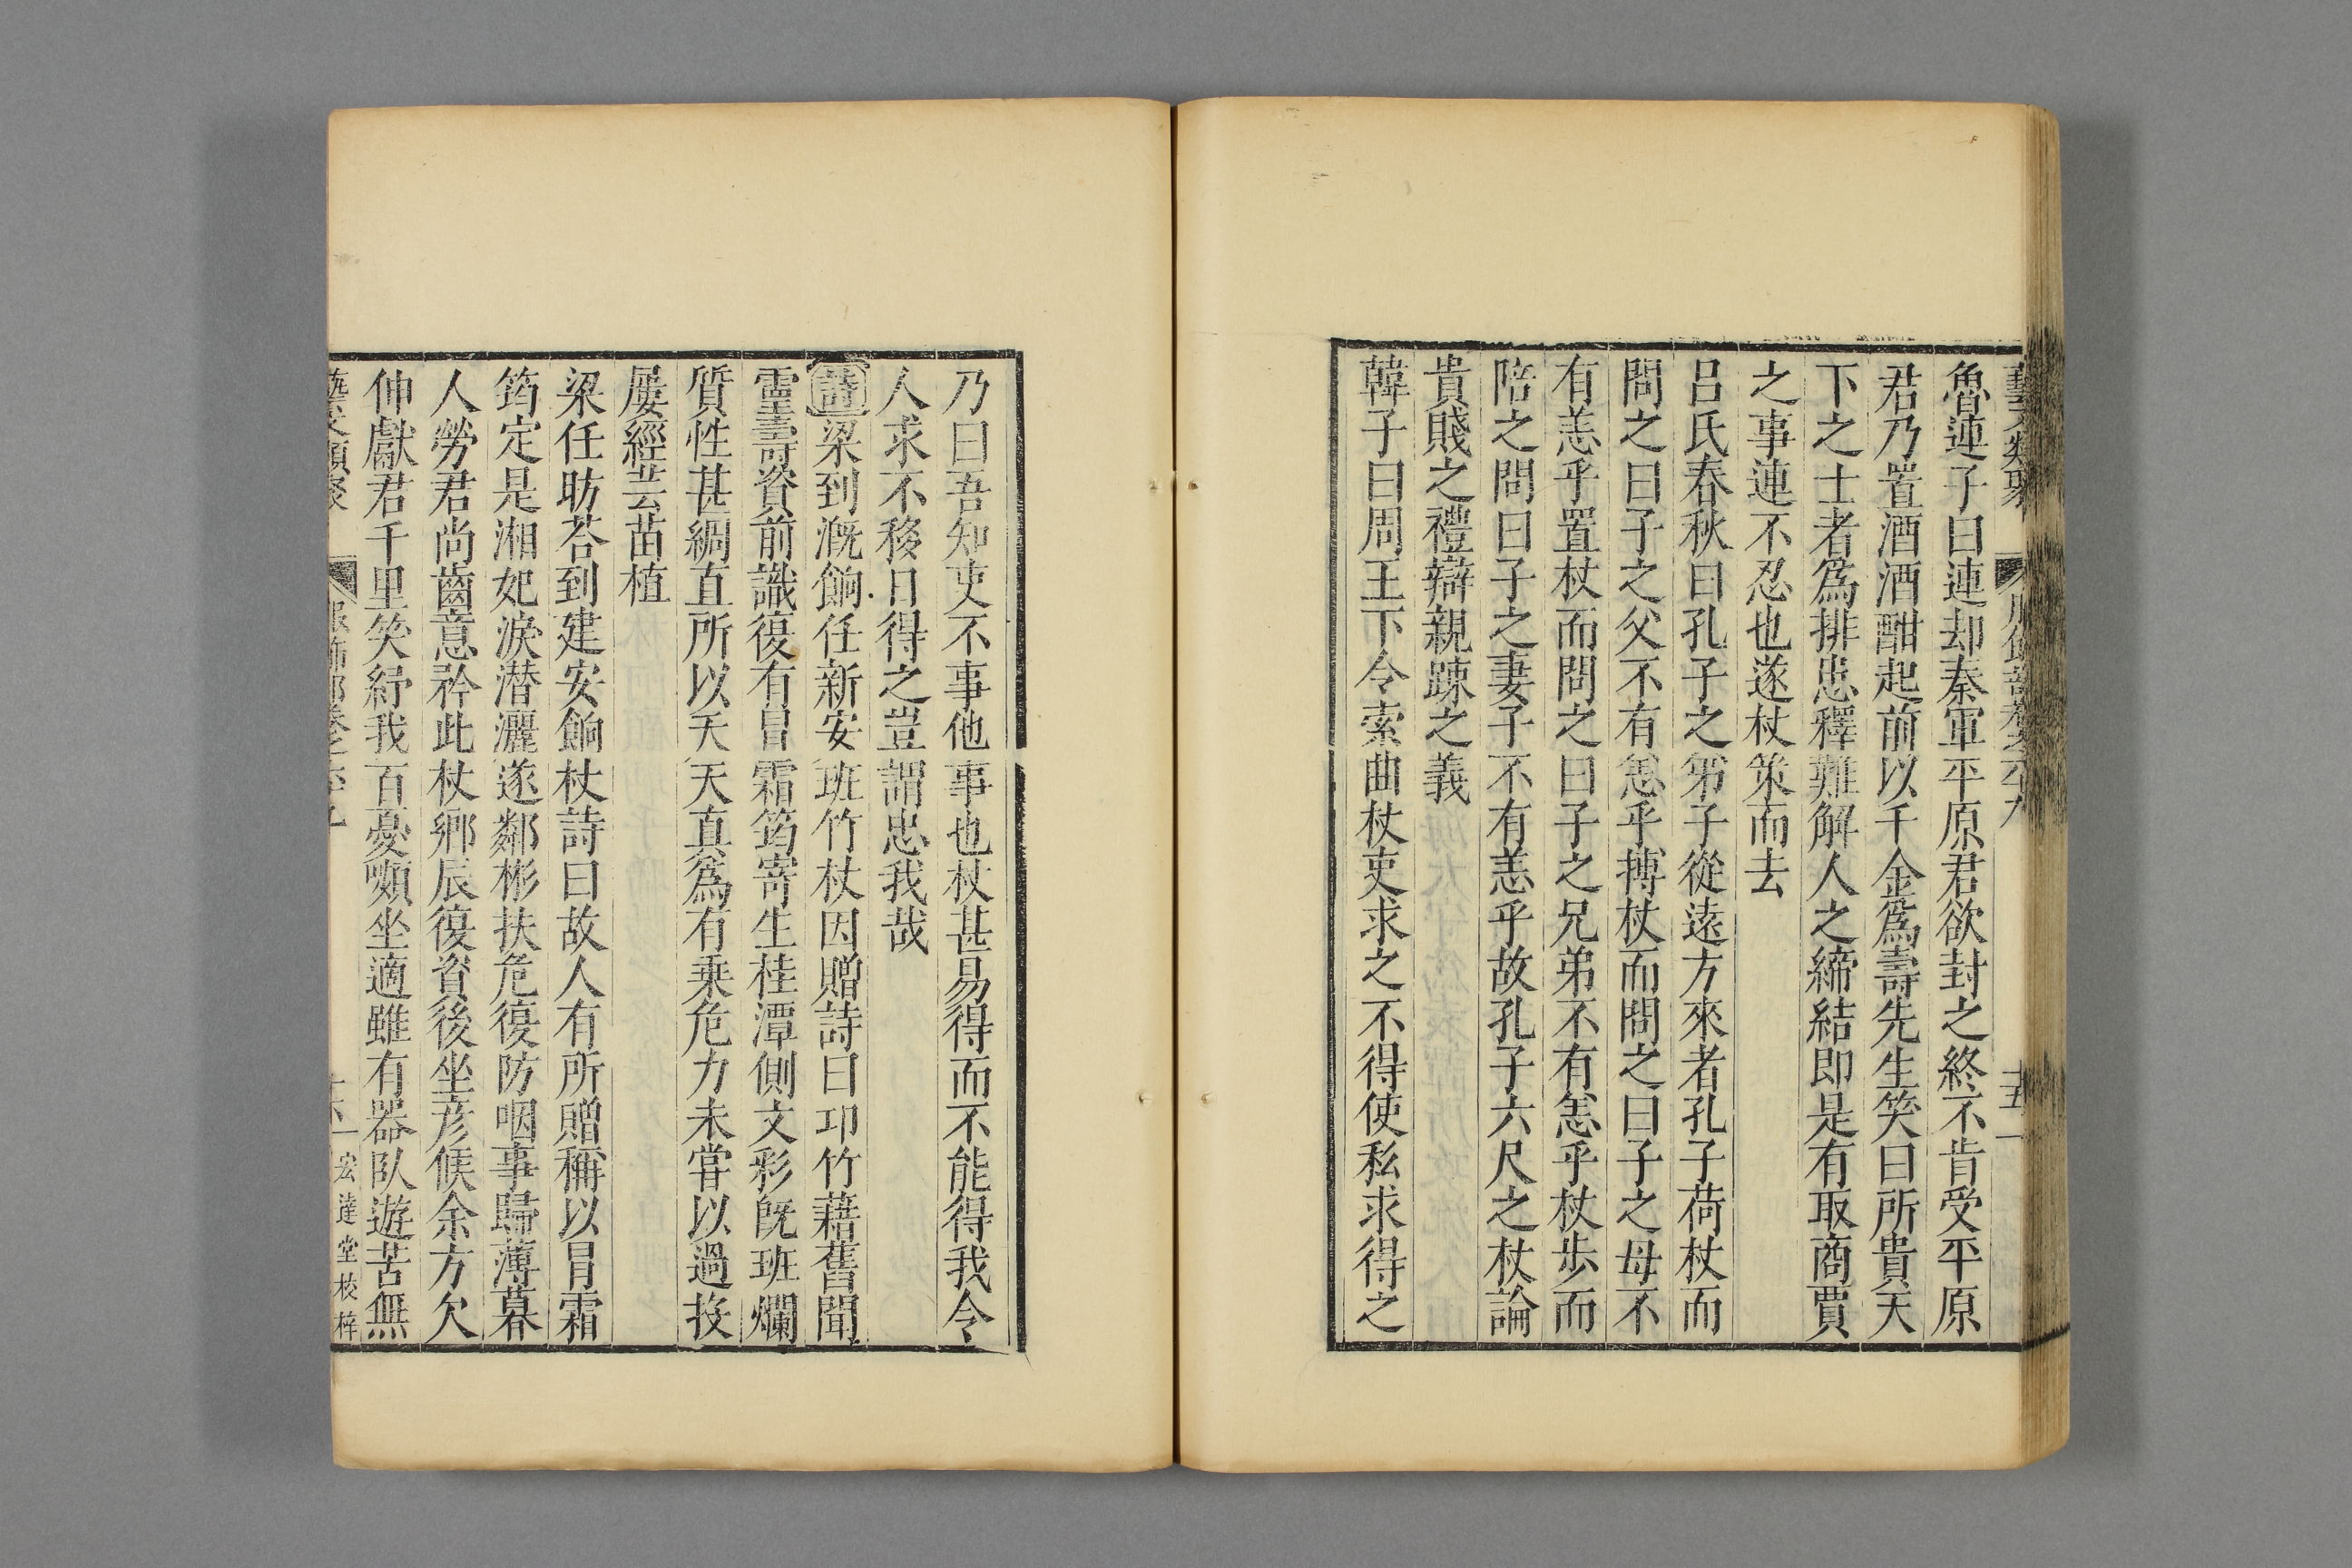 魯連子曰連却秦軍平原君欲封之終不肯受平原
君乃置酒酒酣起前以千金爲壽先生笑曰所貴天
下之士者爲排患釋難解人之締結即是有取商賈
之事連不忍也遂杖策而去
呂氏春秋曰孔子之弟子從遠方來者孔子荷杖而
問之曰子之父不有恙乎搏杖而問之曰子之母不
有恙乎置杖而問之曰子之兄弟不有恙乎杖步而
陪之問曰子之妻子不有恙乎故孔子六尺之杖論
貴賤之禮辯親踈之義
韓子曰周王下令索曲杖吏求之不得使私求得之
乃曰吾知吏不事他事也杖甚易得而不能得我令
人求不移日得之豈謂忠我哉
詩梁到溉餉任新安班竹杖因贈詩曰卭竹藉舊聞
靈壽資前識復有冒霜筠寄生桂潭側文彩旣班爛
質性甚綢直所以夭天真爲有乗危力未甞以過投
屢經芸苗植
梁任昉荅到建安餉杖詩曰故人有所贈稱以冒霜
筠定是湘妃淚潜灑遂鄰彬扶危復防咽事歸薄暮
人勞君尚齒意矜此杖鄉辰復資後坐彦候余方欠
伸獻君千里笑紓我百憂嚬坐適雖有器臥遊苦無
宏達堂校梓